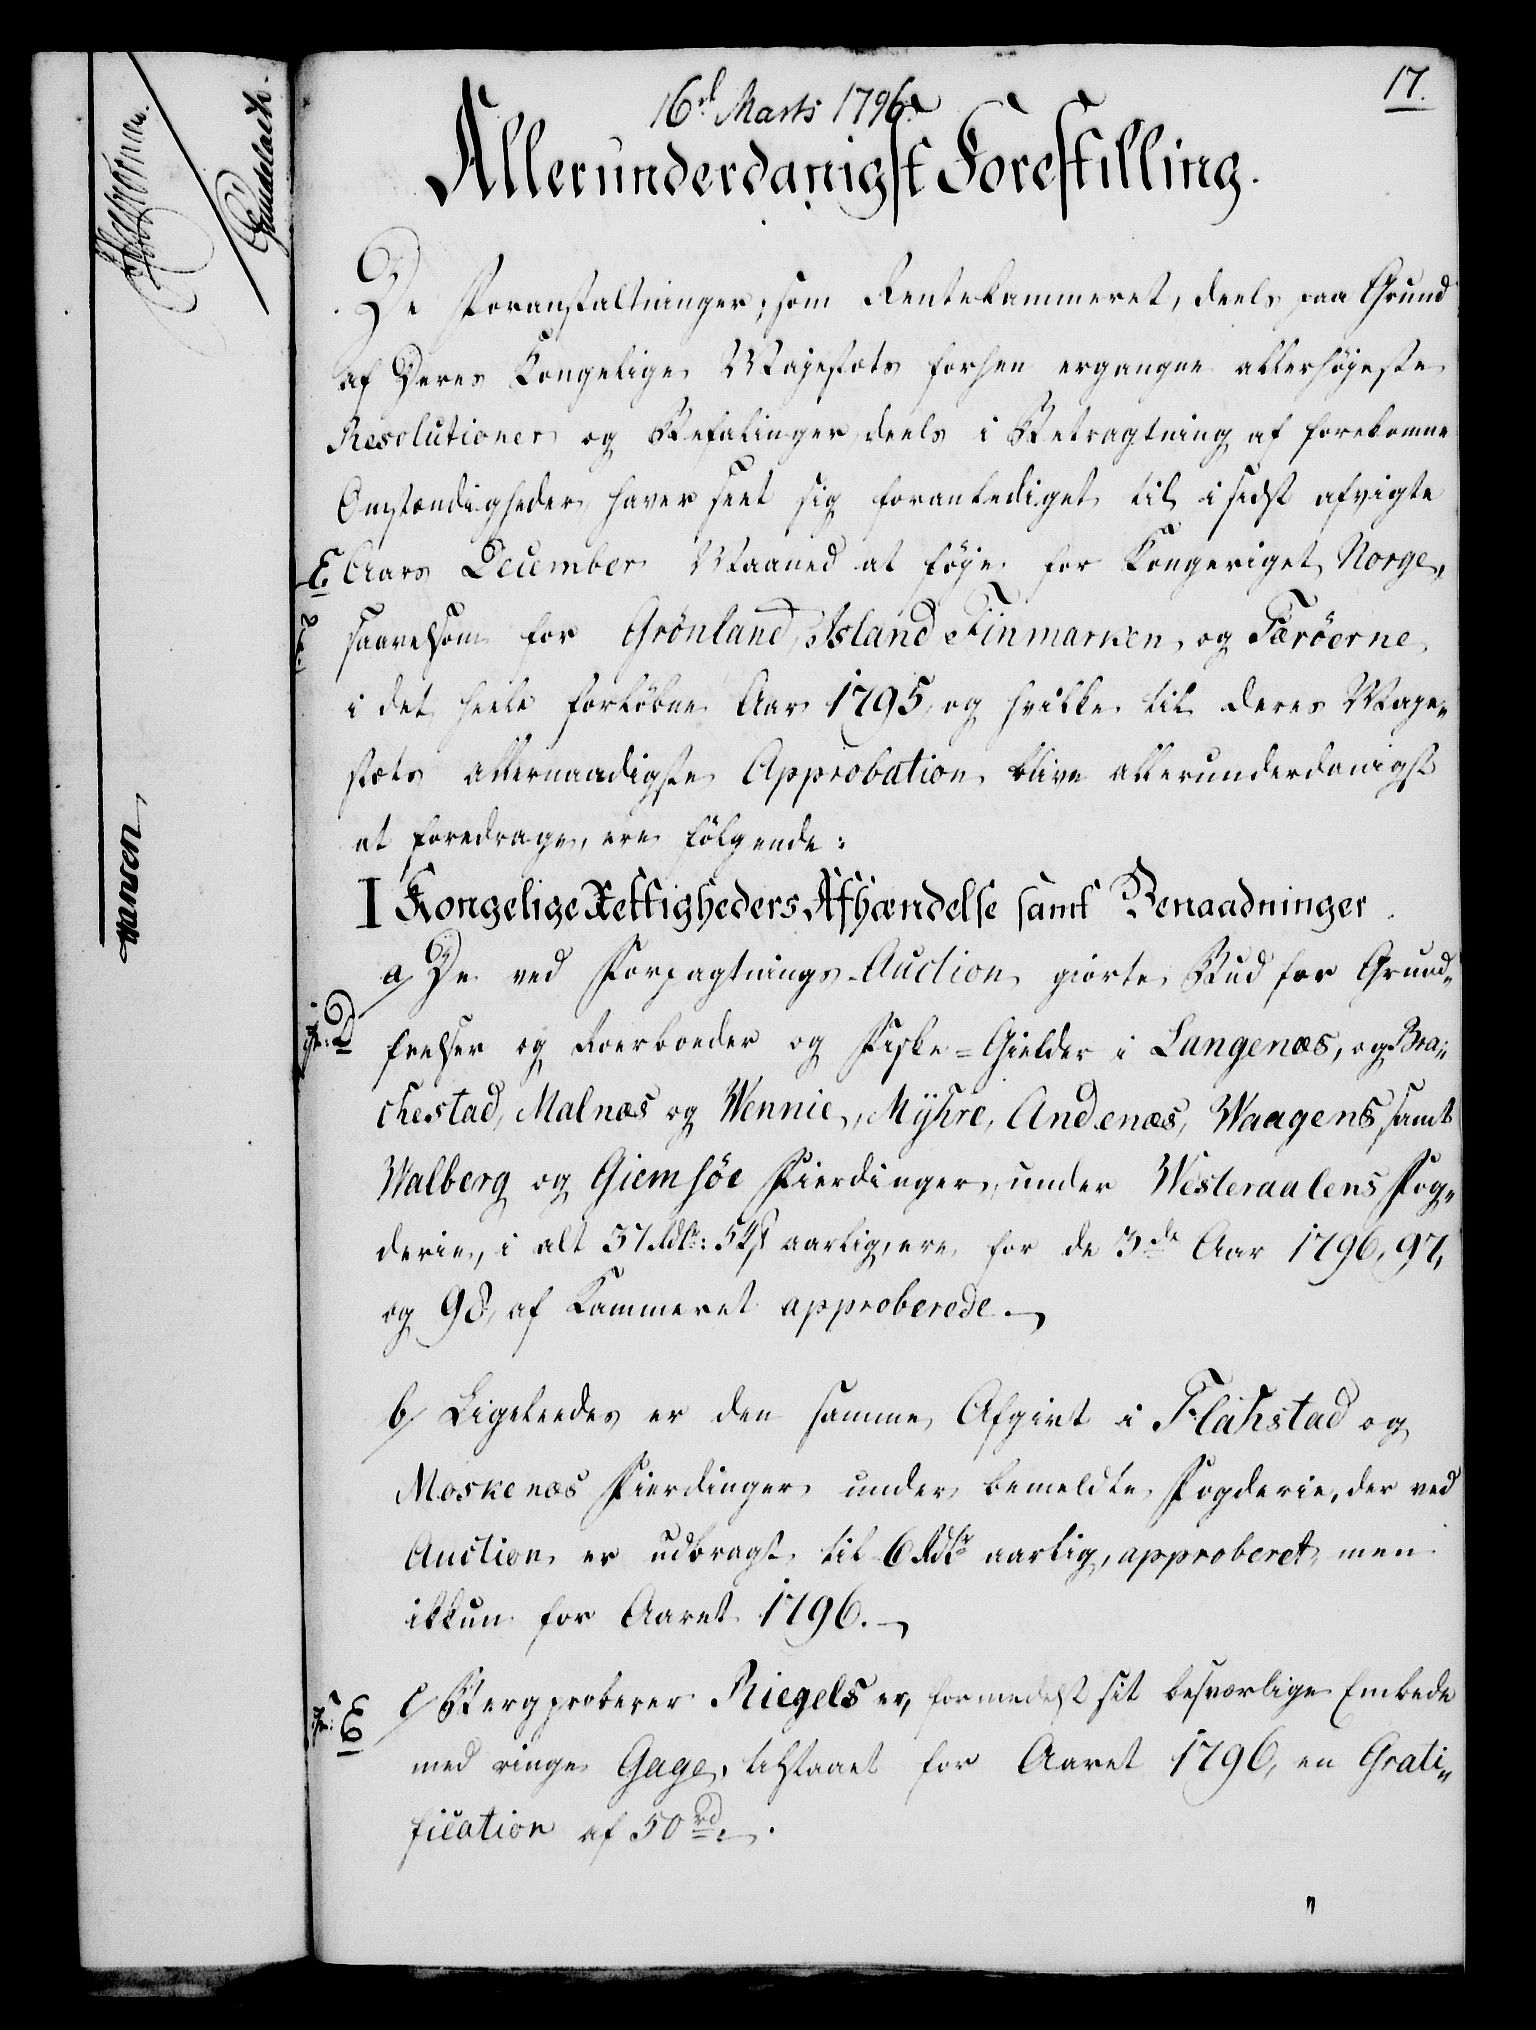 17.
16d Marts 1796.
Allerunderdanigst Forestilling.
De Foranstaltninger, som Rentekammeret, deels paa Grund
af Deres Kongelige Majestæts forhen ergangne allerhøjeste
Resolutioner og Befalinger, deels i Betragtning af forekomne
Omstændigheder, haver seet sig foranlediget til i sidst afvigte
Aars December Maaned at føje for Kongeriget Norge,
saavelsom for Grönland, Island Finmarken, og Færöerne
i det heele forløbne Aar 1795, og hvilke til Deres Maje„
stæts allernaadigste Approbation blive allerunderdanigst
at foredrage, ere følgende:
I Kongelige Rettigheders Afhændelse samt Benaadninger.
a/ De ved Forpagtnings-Auction giorte Bud for Grund„
frelser og Roerboeder og Fiske=Gielder i Langenæs, og Bra„
chestad, Malnæs og Wennie, Myhre, Andenæs, Waagens samt
Walberg og Giemsöe Fierdinger, under Westeraalens Fog„
derie, i alt 37 Rdlr: 5 aarlig, ere for de 3de Aar 1796, 97,
og 98, af Kammeret approberede.
b/ Ligeleedes er den samme Afgivt i Flahstad og
Moskenæs Fierdinger under bemeldte Fogderie, der ved
Auction er udbragt til 6 Rdlr aarlig, approberet, men
ikkun for Aaret 1796.
c/ Bergproberer Riegels er, formedelst sit besværlige Embede
med ringe Gage, tilstaaet for Aaret 1796, en Grati„
fication af 50 rd.
Wansen